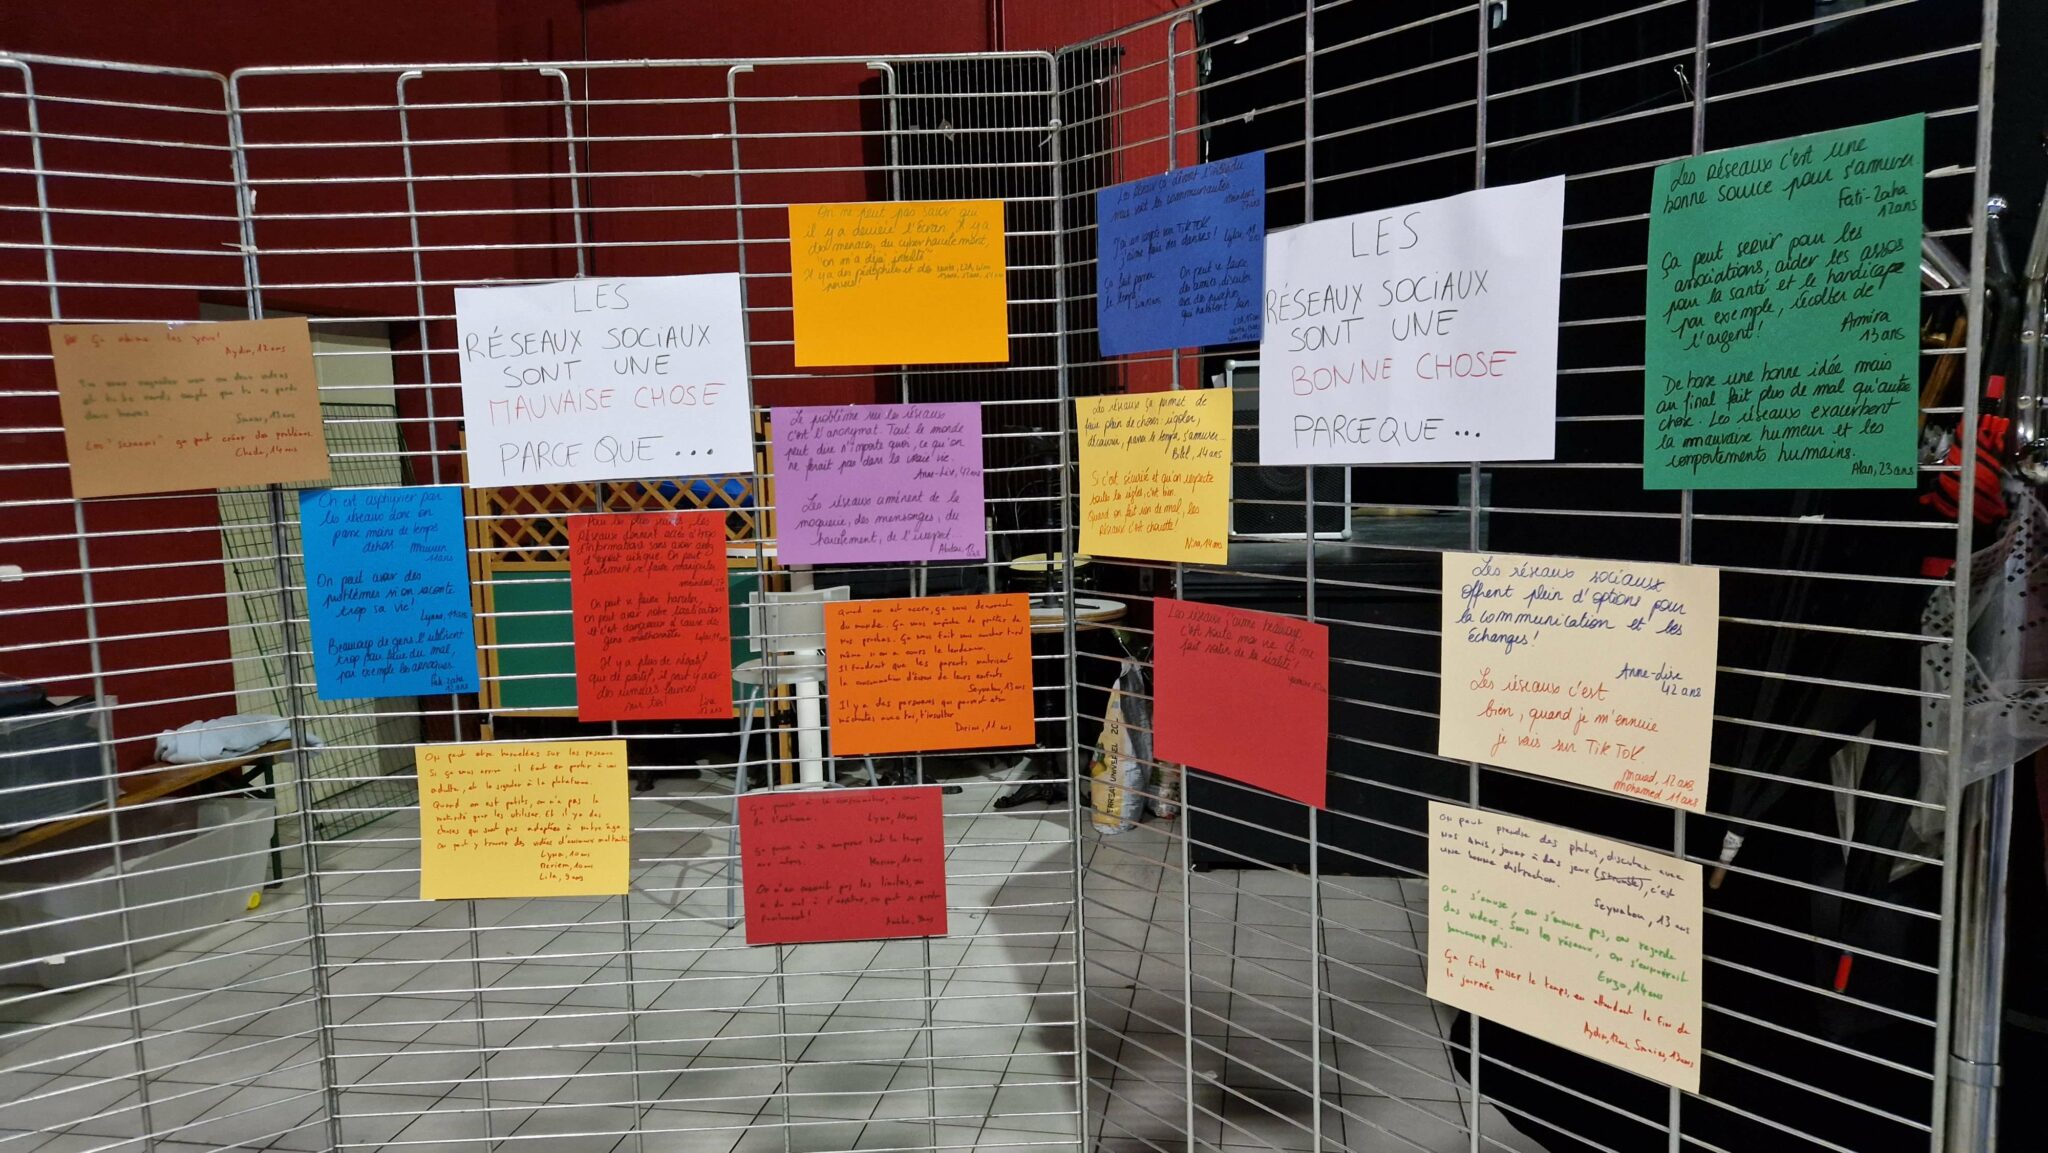 Ça abîme les yeux!
Aydin, 12 ans
et tu te rends compte que tu as perdu
deux heures.
Smaïn, 13 ans
Les "screens" ça peut créer des problèmes.
Cheda, 14 ans
LES
RÉSEAUX SOCIAUX
SONT UNE
MAUVAISE CHOSE
PARCE QUE ...
On ne peut pas savoir qui
il y a derrière l'écran. Il y a
des menaces, du cyberharcèlement,
"on m'a déjà insulté"
Il y a des pédophiles et des
On est asphyxier par
les réseaux donc on
passe moins de temps
dehors
11 ans
On peut avoir des
problèmes si on raconte
trop sa vie!
Beaucoup de gens l'utilisent
trop pour faire du mal,
par exemple les arnaques.
Fati-Zaha
12 ans
Pour les plus jeunes, les
Réseaux donnent accès à trop
d'informations sans avoir
d'esprit critique. On peut
facilement se faire manipuler
On peut se faire harceler,
on peut avoir notre localisation
et c'est dangereux à cause des
gens malhonnête
Il y a plus de négatif
que de positif, il peut y avoir
des rumeurs fausses
sur toi!
Le problème sur les réseaux
c'est l'anonymat. Tout le monde
peut dire n'importe quoi, ce qu'on
ne ferait pas dans la vraie vie.
Anne-Lise, 42 ans
Les réseaux amènent de la
moquerie, des mensonges, du
harcèlement, de l'irrespect...
Quand on est accro, ça nous déconnecte
du monde. Ça nous empêche de profiter de
nos proches. Ça nous fait nous coucher tard
même si on a cours le lendemain.
Il faudrait que les parents maîtrisent
la consommation d'écran de leurs enfants
Seynabou, 13 ans
Il y a des personnes qui peuvent être
méchantes avec toi, t'insulter
11 ans
On peut être harcelées sur les réseaux
Si ça nous arrive il faut en parler à un
adulte, et le signaler à la plateforme.
Quand on est petits, on n'a pas la
maturité pour les utiliser. Et il y a des
choses qui sont pas adaptées à notre âge.
On peut y trouver des vidéos d'animaux maltraités
Lyna, 10 ans
Meriem, 10 ans
Lila, 9 ans
Ça pousse à la consommation, à cause
Lyna, 10 ans
Ça pousse à se comparer tout le temps
aux autres.
Meriem, 10 ans
On n'en connaît pas les limites, on
a du mal à s'arrêter, on peut se perdre
facilement!
Les réseaux ça permet de
faire plein de choses: rigoler,
découvrir, passer le temps, s'amuser...
Bilel, 14 ans
Si c'est sécurisé et qu'on respecte
toutes les règles, c'est bien.
Quand on fait rien de mal, les
réseaux c'est chouette!
Nina, 14 ans
J'ai un compte sur TikTok
j'aime faire des danses!
Ça fait passer
le temps!
On peut se faire
des amies, discuter
avec des proches
qui habitent loin.
LES
RÉSEAUX SOCIAUX
SONT UNE
BONNE CHOSE
PARCE QUE ...
Les réseaux j'aime beaucoup
c'est toute ma vie. Ça me
fait sortir de la réalité!
Les réseaux c'est une
bonne source pour s'amuser.
Fati-Zaha
12 ans
Ça peut servir pour les
associations, aider les assos
pour la santé et le handicape
par exemple, récolter de
l'argent!
Amira
13 ans
De base une bonne idée mais
au final fait plus de mal qu'autre
chose. Les réseaux exacerbent
la mauvaise humeur et les
comportements humains.
Alan, 23 ans
Les réseaux sociaux
offrent plein d'options pour
la communication et les
échanges!
Anne-Lise
42 ans
Les réseaux c'est
bien, quand je m'ennuie
je vais sur TikTok.
Mouad, 12 ans
Mohamed 11 ans
On peut prendre des photos, discuter avec
nos amis, jouer à des jeux
une bonne distraction.
Seynabou, 13 ans
On s'amuse, on s'amuse pas, on regarde
des vidéos. Sans les réseaux, on s'ennuierait
beaucoup plus.
Enzo, 14 ans
Ça fait passer le temps, en attendant la fin de
la journée
Aydin, 12 ans Smaïn, 13 ans